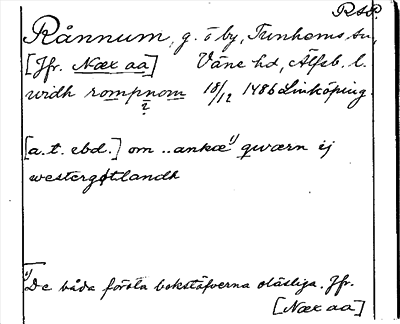 RSP.
Rånnum, g. o by, Trunhems sn,
[Jfr. Næx aa] Väne hd, Älfsb. l.
widh rompnom 18/12 1486 Linköping.
?
[a. t. ebd.] om ..ankæ¹⁾ qwærn ij
westergøtlandh
¹⁾ De båda första bokstäfverna oläsliga. Jfr.
[Næx aa]